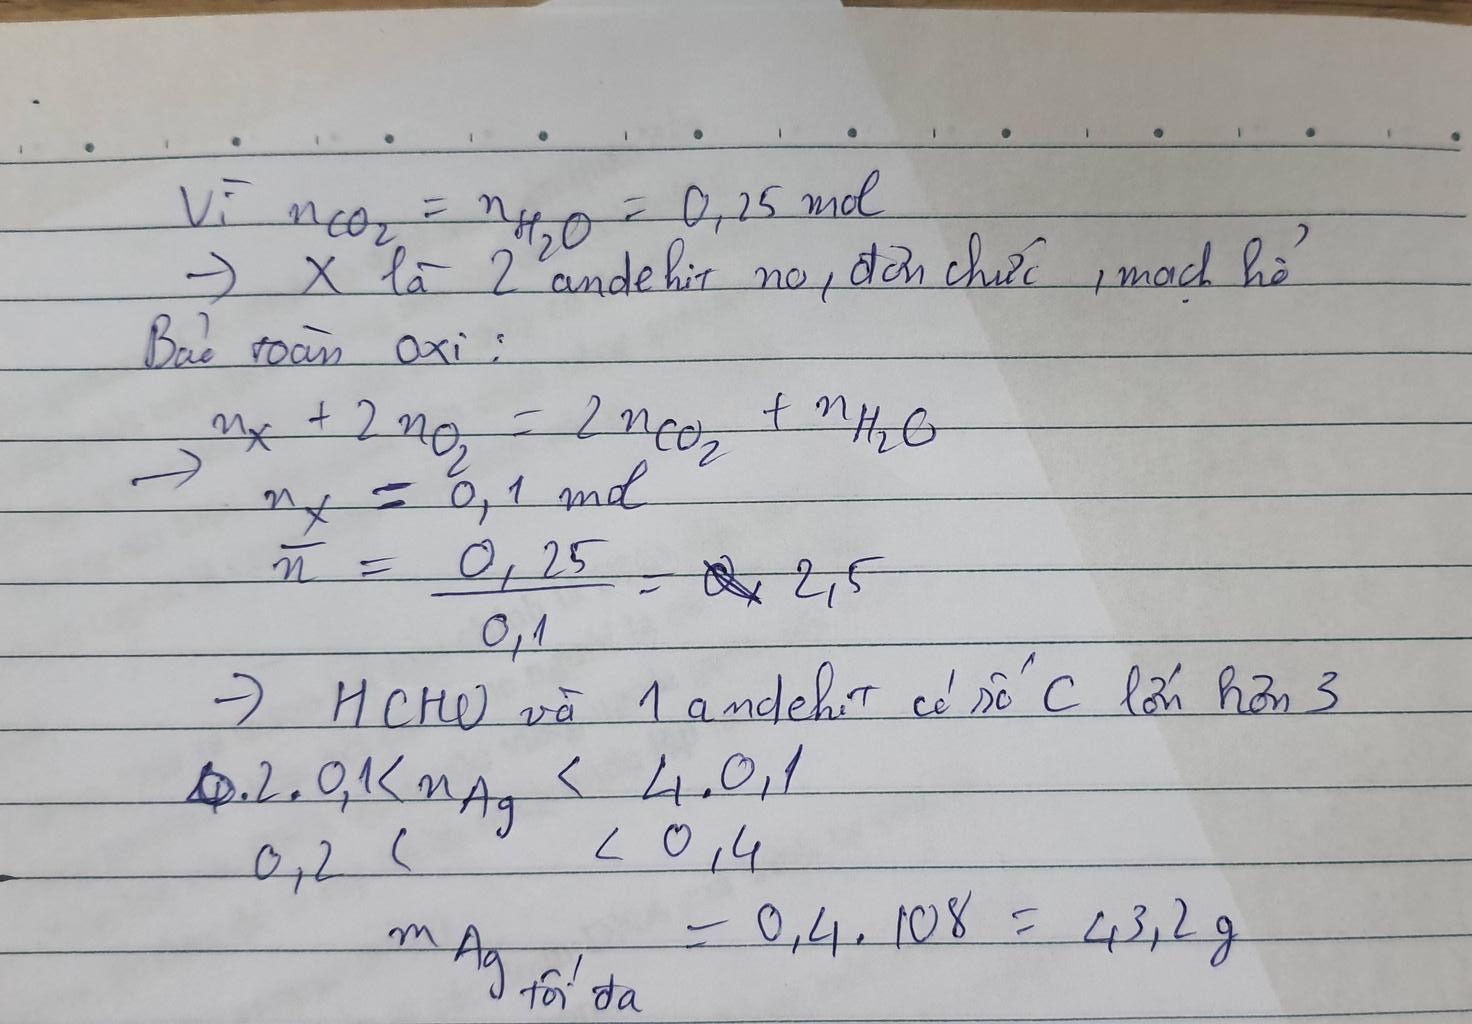 Vì nCO₂ = nH₂O = 0,25 mol
→ X là 2 andehit no, đơn chức, mạch hở
Bảo toàn oxi:
nX + 2nO₂ = 2nCO₂ + nH₂O
→ nX = 0,1 mol
n̄ = 0,25 / 0,1 = 2,5
→ HCHO và 1 andehit có số C lớn hơn 3
2.0,1 < nAg < 4.0,1
0,2 < < 0,4
mAg tối đa = 0,4.108 = 43,2g